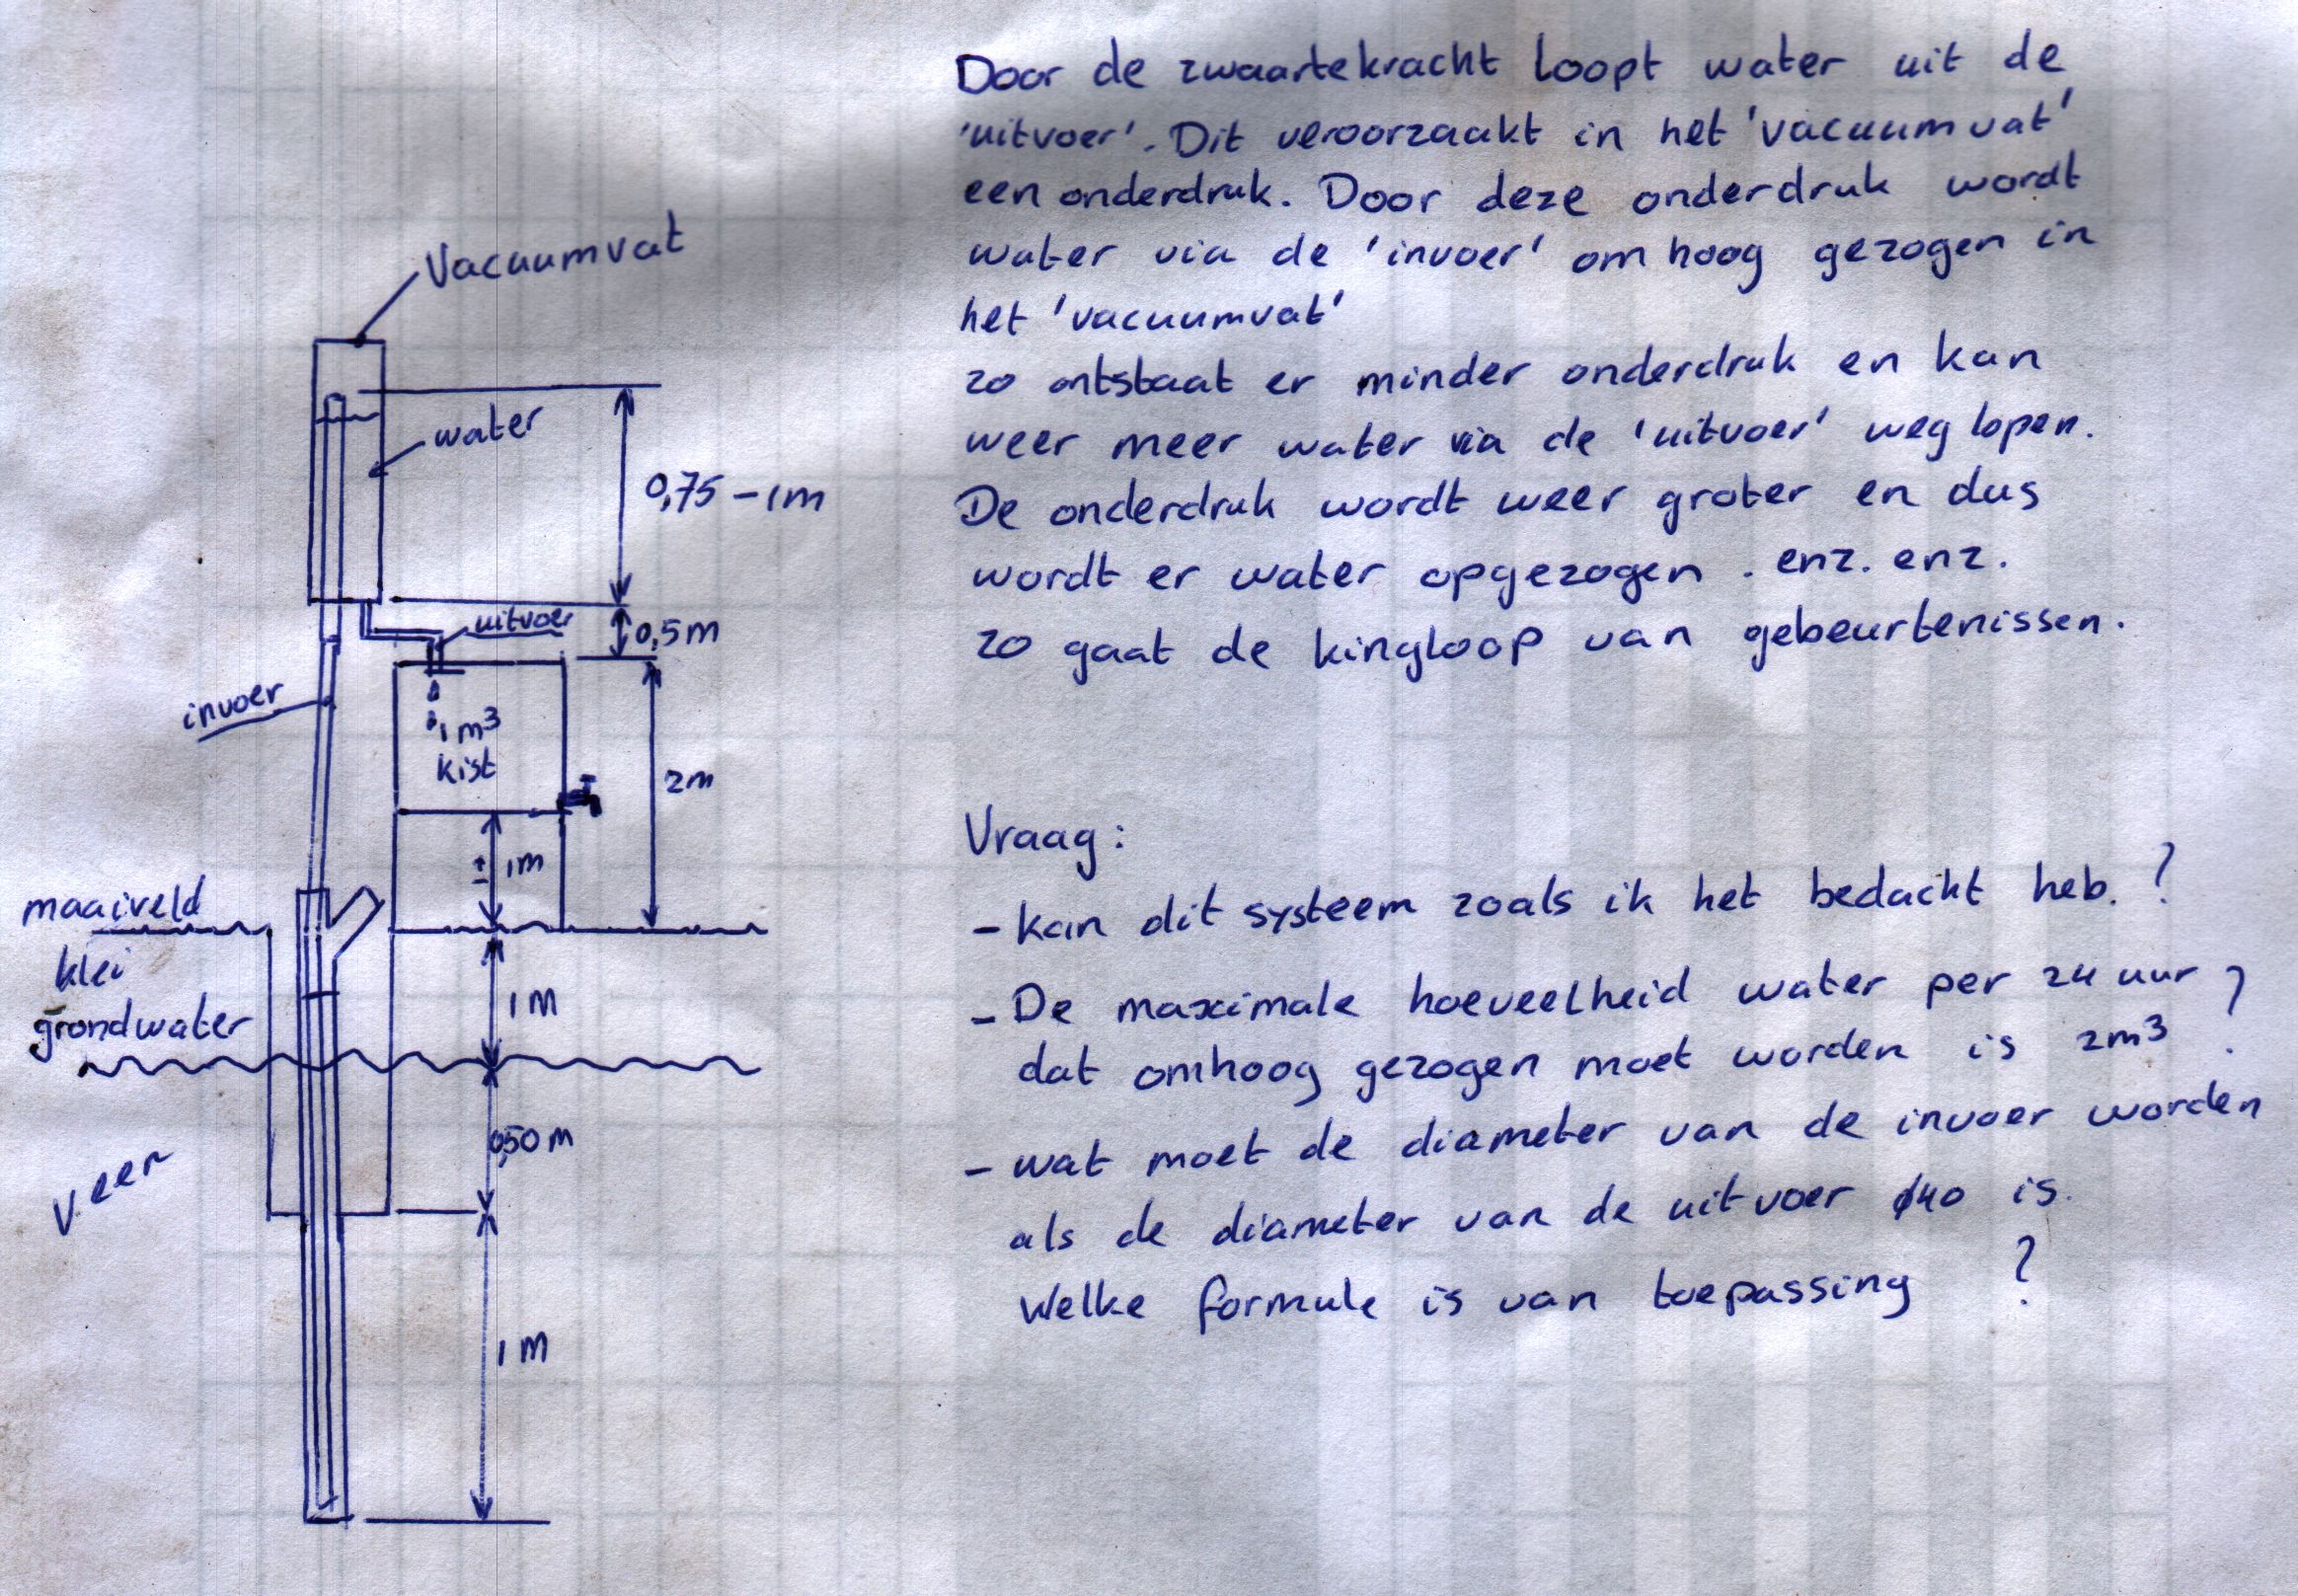 Vacuumvat
water
0,75 - 1m
uitvoer
0,5m
invoer
1 m³
kist
2m
± 1m
maaiveld
klei
grondwater
1 M
0,50 m
Veen
1 M
Door de zwaartekracht loopt water uit de
'uitvoer'. Dit veroorzaakt in het 'vacuumvat'
een onderdruk. Door deze onderdruk wordt
water via de 'invoer' omhoog gezogen in
het 'vacuumvat'
zo ontstaat er minder onderdruk en kan
weer meer water via de 'uitvoer' weg lopen.
De onderdruk wordt weer groter en dus
wordt er water opgezogen. enz. enz.
zo gaat de kingloop van gebeurtenissen.
Vraag:
- kan dit systeem zoals ik het bedackt heb. ?
- De maximale hoeveelheid water per 24 uur
dat omhoog gezogen moet worden is 2m³ ?
- wat moet de diameter van de invoer worden
als de diameter van de uitvoer ø40 is.
Welke formule is van toepassing ?